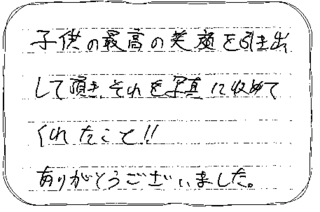 子供の最高の笑顔を引き出
して頂き、それを写真に収めて
くれたこと!!
ありがとうございました。